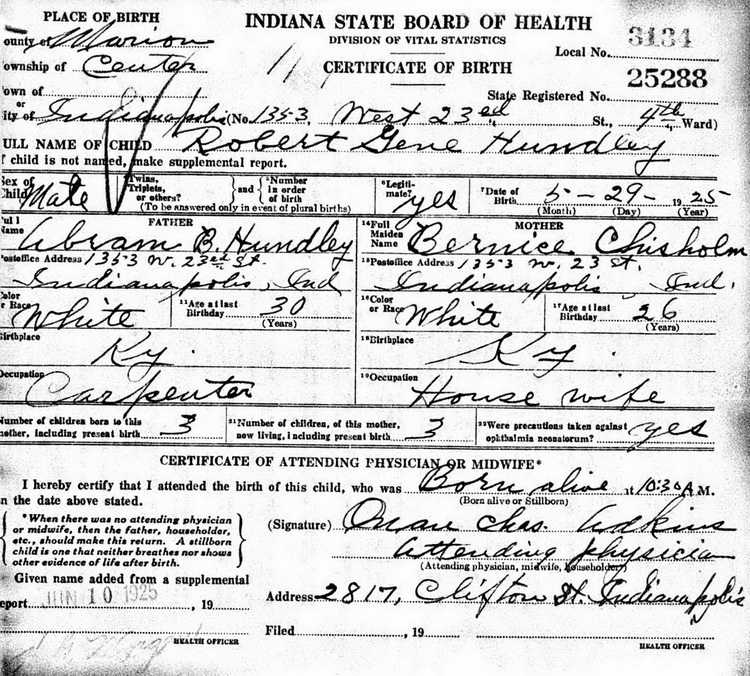 PLACE OF BIRTH
ounty of Marion
ownship of Center
own of
or
ity of Indianapolis (No. 1353, West 23rd St., 4th Ward)
INDIANA STATE BOARD OF HEALTH
DIVISION OF VITAL STATISTICS
CERTIFICATE OF BIRTH
Local No. 3134
25288
State Registered No.
ULL NAME OF CHILD Robert Gene Hundley
f child is not named, make supplemental report.
Sex of Child Male
Twins, Triplets, or others? } and { Number in order of birth
(To be answered only in event of plural births)
Legiti-mate? yes
Date of Birth 5-29-1925
(Month) (Day) (Year)
FATHER
ull Name Abram B. Hundley
Postoffice Address 1353 W. 23rd St.
Indianapolis, Ind
Color or Race White
11 Age at last Birthday 30
(Years)
Birthplace Ky.
Occupation Carpenter
MOTHER
14 Full Maiden Name Bernice Chisholm
15 Postoffice Address 1353 W. 23 St.
Indianapolis, Ind.
16 Color or Race White
17 Age at last Birthday 26
(Years)
18 Birthplace Ky.
19 Occupation House wife
Number of children born to this mother, including present birth 3
21 Number of children, of this mother, now living, including present birth 3
22 Were precautions taken against ophthalmia neonatorum? yes
CERTIFICATE OF ATTENDING PHYSICIAN OR MIDWIFE*
I hereby certify that I attended the birth of this child, who was Born alive at 10:30 A M.
(Born alive or Stillborn)
n the date above stated.
*When there was no attending physician
or midwife, then the father, householder,
etc., should make this return. A stillborn
child is one that neither breathes nor shows
other evidence of life after birth.
(Signature) Chas. Adkins
Attending physician
(Attending physician, midwife, householder)
Given name added from a supplemental
eport JUN 10 1925, 19
Address 2817, Clifton St. Indianapolis
Filed , 19
HEALTH OFFICER
HEALTH OFFICER